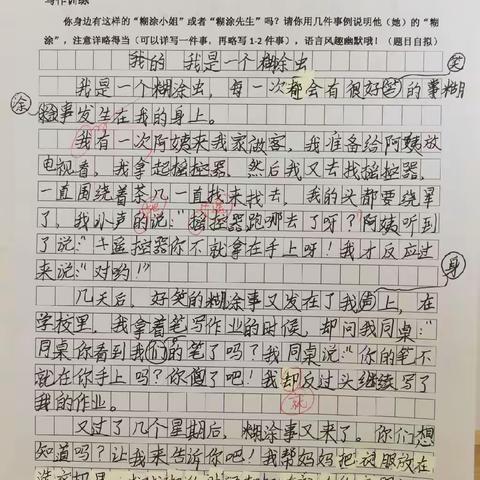 写作训练
你身边有这样的“糊涂小姐”或者“糊涂先生”吗？请你用几件事例说明他（她）的“糊
涂”，注意详略得当（可以详写一件事，再略写1-2件事），语言风趣幽默哦！（题目自拟）
我的 我是一个糊涂虫
笑
我是一个糊涂虫，每一次都会有很好笑的 糊
涂
事发生在我的身上。
我有一次阿姨来我家做客，我准备给阿姨放
电视看，我拿起摇控器，然后我又去找摇控器，
一直围绕着茶几一直找来找去，我的头都要绕晕
了，我小声的说：“摇控器跑哪去了呀？阿姨听到
了说：“ 摇控器你不就拿在手上呀！我才反应过
来说：“对哟！”
身
几天后，好笑的糊涂事又发在了我 上，在
学校里，我拿着笔写作业的时候，却问我同桌：“
同桌你看到我 的笔了吗？我同桌说：“你的笔不
就在你手上吗？你 了吧！我却反过头继续写了
就
我的作业。
又过了几个星期后，糊涂事又来了。你们想
知道吗？让我来告诉你吧！我帮妈妈把衣服放在